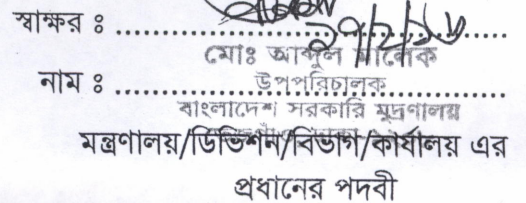 স্বাক্ষর ঃ ........................................
২৭/২/১৮
মোঃ আব্দুল মালেক
নাম ঃ ........................................
উপপরিচালক
বাংলাদেশ সরকারি মুদ্রণালয়
মন্ত্রণালয়/ডিভিশন/বিভাগ/কার্যালয় এর
প্রধানের পদবী